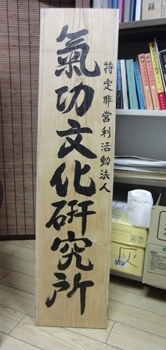 特定非営利活動法人
氣功文化研究所